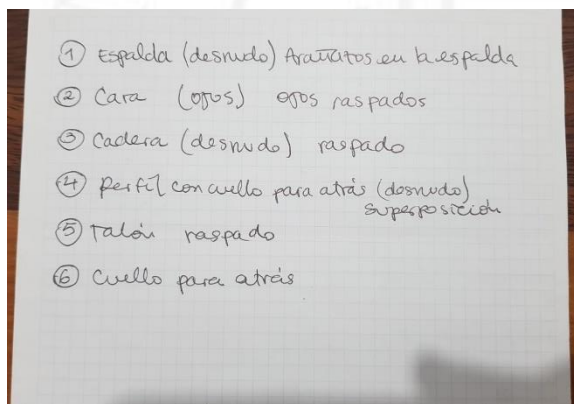 ① Espalda (desnudo) Arañatos en la espalda
② Cara (ojos) ojos raspados
③ Cadera (desnudo) raspado
④ Perfil con cuello para atrás (desnudo)
superposición
⑤ Talón raspado
⑥ Cuello para atrás